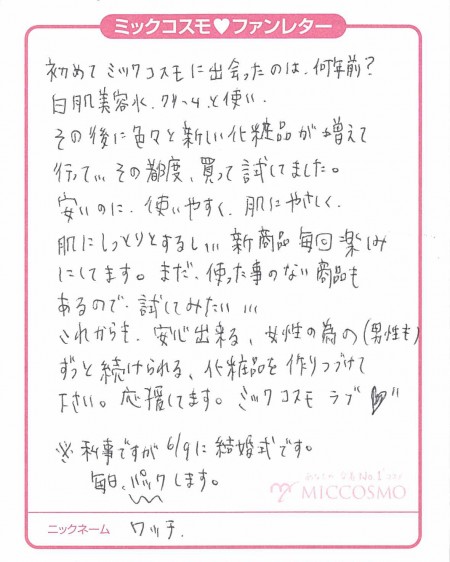 ミックコスモ♥ファンレター
初めて ミックコスモに出会ったのは、何年前?
白肌美容水、 と使い、
その後に色々と新しい化粧品が増えて
行って、、、その都度、買って試してました。
安いのに、使いやすく、肌にやさしく、
肌にしっとりとするし、、、新商品毎回楽しみ
にしてます。まだ、使った事のない商品も
あるので、試してみたい、、、
これからも、安心出来る、女性の為の(男性も)
ずっと続けられる、化粧品を作りつづけて
下さい。応援してます。ミックコスモ ラブ♡"
※私事ですが6/9に結婚式です。
毎日、パックします。
あなたの 美 No.1
MICCOSMO
ニックネーム ワッチ.